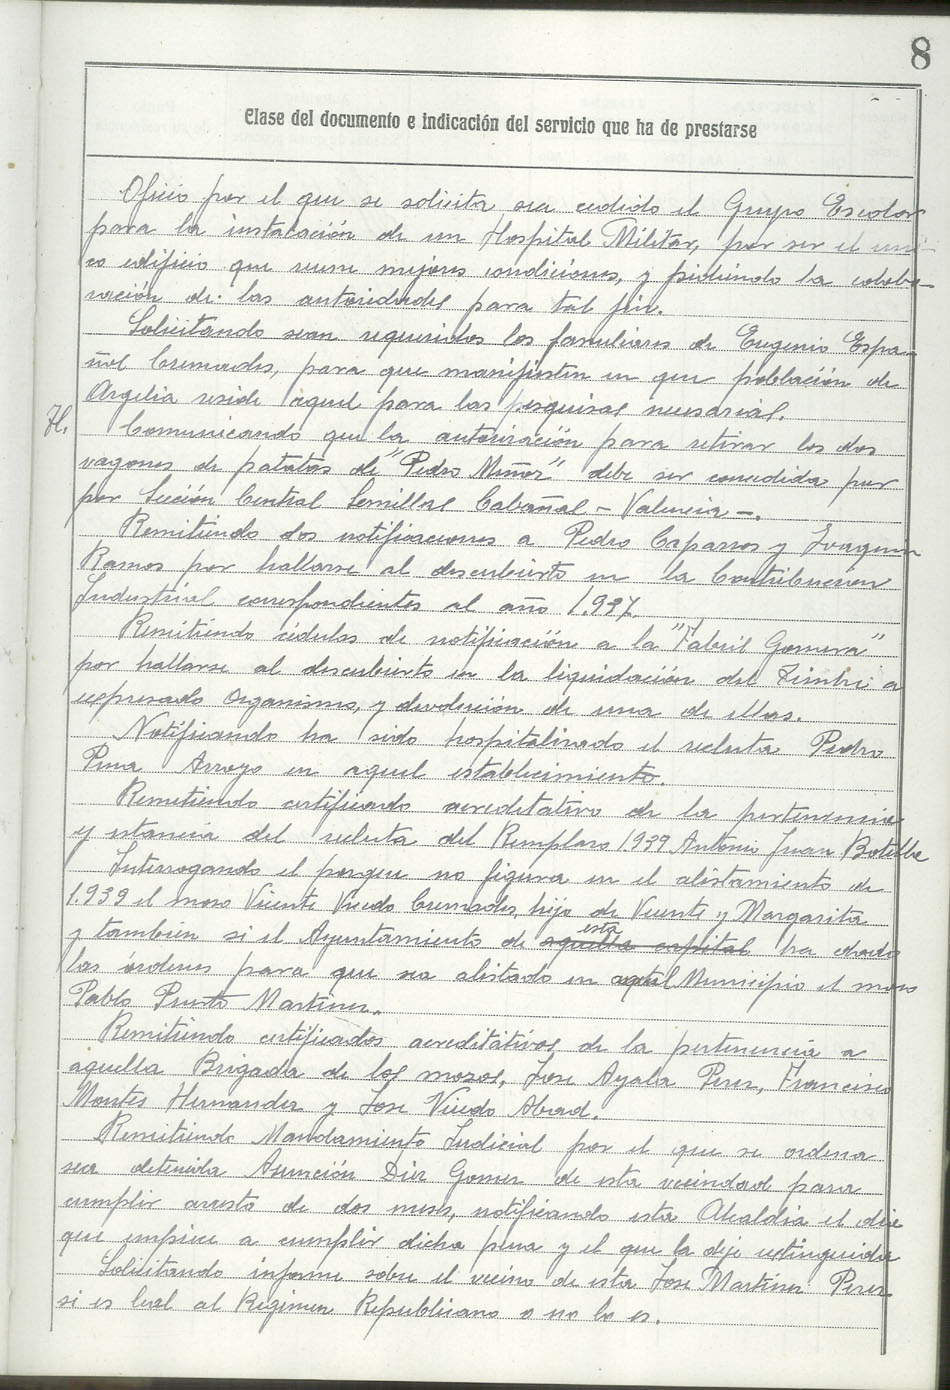 8
Clase del documento e indicación del servicio que ha de prestarse
Oficio por el que se solicita sea cedido el Grupo Escolar
para la instalación de un Hospital Militar, por ser el úni-
co edificio que reune mejores condiciones, y pidiendo la colabo-
ración de las autoridades para tal fin.
Solicitando sean requeridos los familiares de Eugenio Espa-
ñol Cremades, para que manifiesten en que población de
Argelia reside aquel para las pesquisas necesarias.
Comunicando que la autorización para retirar los dos
vagones de patatas de "Pedro Muñoz" debe ser concedida por
por Sección Central Semillas Cabañal - Valencia -.
Remitiendo dos notificaciones a Pedro Caparros y Joaquin
Ramos por hallarse al descubierto en la Contribución
Industrial correspondientes al año 1.937.
Remitiendo cédulas de notificación a la "Fabril Gomera"
por hallarse al descubierto en la liquidación del Timbre a
expresado Organismo, y devolución de una de ellas.
Notificando ha sido hospitalizado el recluta Pedro
Pena Arroyo en aquel establecimiento.
Remitiendo certificado acreditativo de la pertenencia
y estancia del recluta del Remplazo 1939 Antonio Juan Botella
Interrogando el porque no figura en el alistamiento de
1.939 el mozo Vicente Vicedo Cremades, hijo de Vicente y Margarita
y tambien si el Ayuntamiento de esta aquella capital ha dado
las órdenes para que sea alistado en aquel Municipio el mozo
Pablo Puerto Martinez.
Remitiendo certificados acreditativos de la pertenencia a
aquella Brigada de los mozos, Jose Ayala Perez, Francisco
Montes Hernandez y Jose Vicedo Abad.
Remitiendo Mandamiento Judicial por el que se ordena
sea detenida Asunción Diez Gomez de esta vecindad para
cumplir arresto de dos meses, notificando esta Alcaldia el dia
que empiece a cumplir dicha pena y el que la deje extinguida
Solicitando informe sobre el vecino de esta Jose Martinez Perez
si es leal al Régimen Republicano o no lo es.